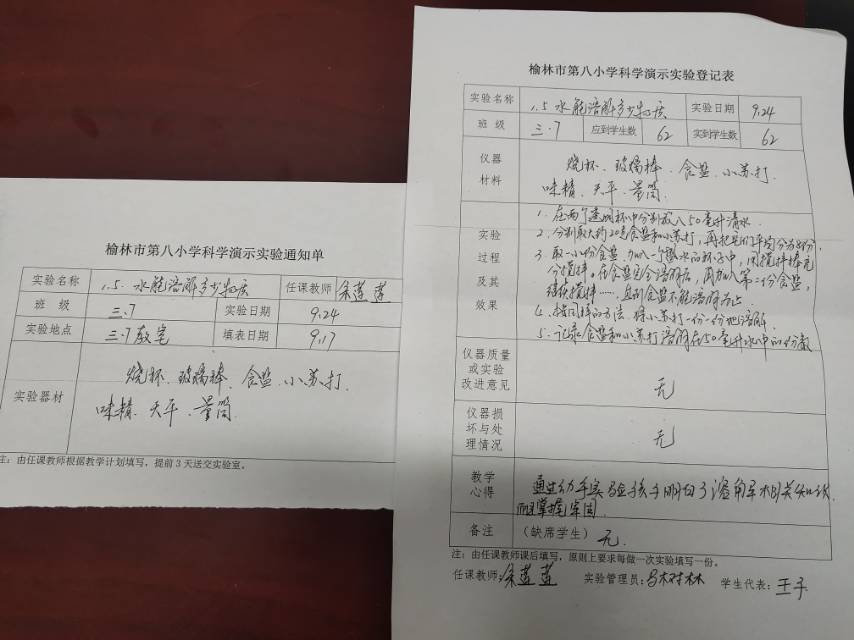 榆林市第八小学科学演示实验通知单
实验名称 1.5.水能溶解多少物质 任课教师
班 级 三.7 实验日期 9.24
实验地点 三.7教室 填表日期 9.17
实验器材 烧杯、玻璃棒、食盐、小苏打、
味精、天平、量筒
注：由任课教师根据教学计划填写，提前3天送交实验室。
榆林市第八小学科学演示实验登记表
实验名称 1.5.水能溶解多少物质 实验日期 9.24
班 级 三.7 应到学生数 62 实到学生数 62
仪器
材料
烧杯、玻璃棒、食盐、小苏打、
味精、天平、量筒
实验
过程
及其
效果
1. 在两个透明杯中分别放入50毫升清水.
2. 分别取大约20克食盐和小苏打,再把它们平均分为8份.
3. 取一小份食盐,加入一个盛水的杯子中,用搅拌棒充
分搅拌。在食盐完全溶解后,再加入第二份食盐,
继续搅拌……,直到食盐不能溶解为止
4. 按同样的方法 将小苏打一份一份地溶解.
5. 记录食盐和小苏打溶解在50毫升水中的份数
仪器质量
或实验
改进意见
无
仪器损
坏与处
理情况
无
教学
心得
通过动手实验孩子明白了溶解相关知识
而且掌握牢固.
备注 （缺席学生） 无.
注：由任课教师课后填写，原则上要求每做一次实验填写一份。
任课教师: 实验管理员: 学生代表: